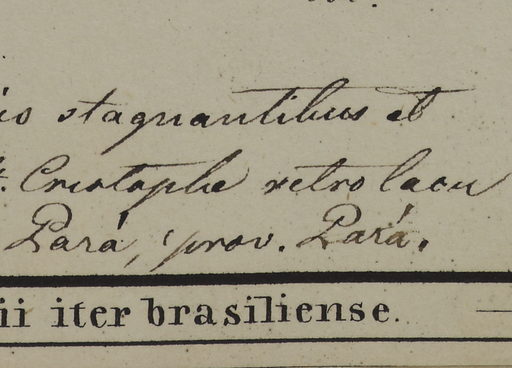 is stagnantibus et
t. Cristophe retro lacu
Pará, prov. Pará.
ii iter brasiliense. —